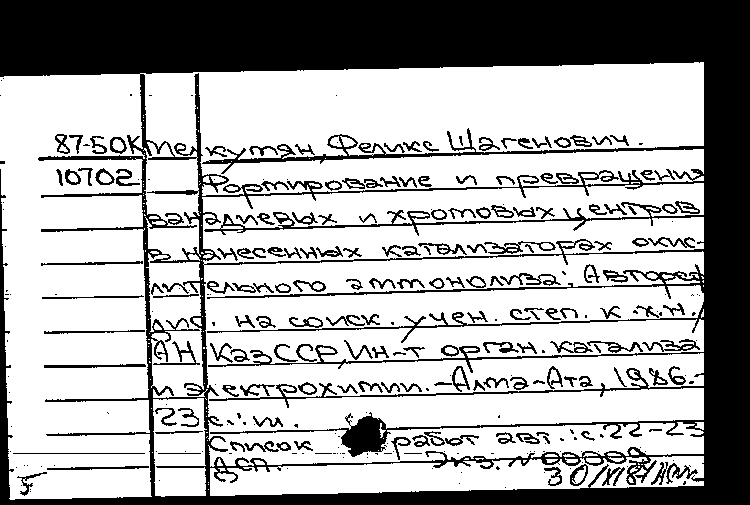 87-50К Мелкумян, Феликс Шагенович.
10702 Формирование и превращения
ванадиевых и хромовых центров
в нанесенных катализаторах окис-
лительного аммонолиза: Автореф
дис. на соиск. учен. степ. к.х.н./
АН КазССР, Ин-т орган. катализа
и электрохимии.-Алма-Ата, 1986.-
23 с.: ил.
Список работ авт.: с.22-23
ДСП. Экз. N 00009
5 30/XI 87